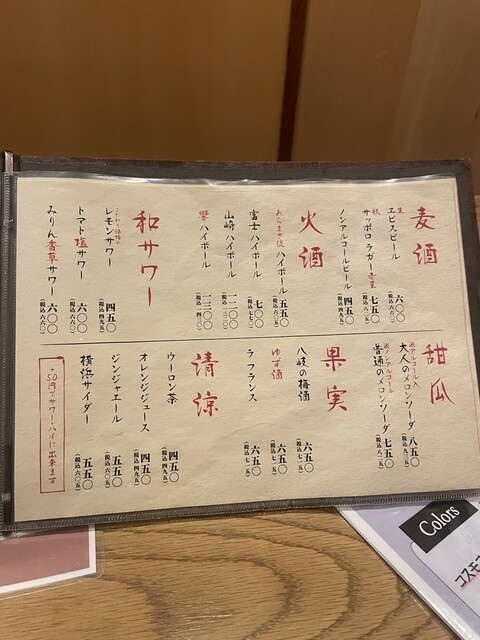 麦酒
生 エビスビール 六〇〇
（税込 六六〇）
瓶 サッポロ ラガー 赤星 七五〇
（税込 八二五）
ノンアルコールビール 四五〇
（税込 四九五）
火酒
ハイボール 五五〇
（税込 六〇五）
富士ハイボール 七〇〇
（税込 七七〇）
山崎 ハイボール 一二〇〇
（税込 一三二〇）
響 ハイボール
和サワー
レモンサワー 四五〇
（税込 四九五）
トマト塩サワー 六〇〇
（税込 六六〇）
みりん香草サワー 六〇〇
（税込 六六〇）
甜瓜
※アルコール入
大人のメロンソーダ 八五〇
（税込 九三五）
※ノンアルコール
普通のメロンソーダ 七五〇
（税込 八二五）
果実
八岐の梅酒 六五〇
（税込 七一五）
ゆず酒 六五〇
（税込 七一五）
ラ フランス 六五〇
（税込 七一五）
清涼
ウーロン茶 四五〇
（税込 四九五）
オレンジジュース 四五〇
（税込 四九五）
ジンジャエール 五五〇
（税込 六〇五）
横浜サイダー 五五〇
（税込 六〇五）
+50円でサワー・ハイに出来ます
Colors
コスモ